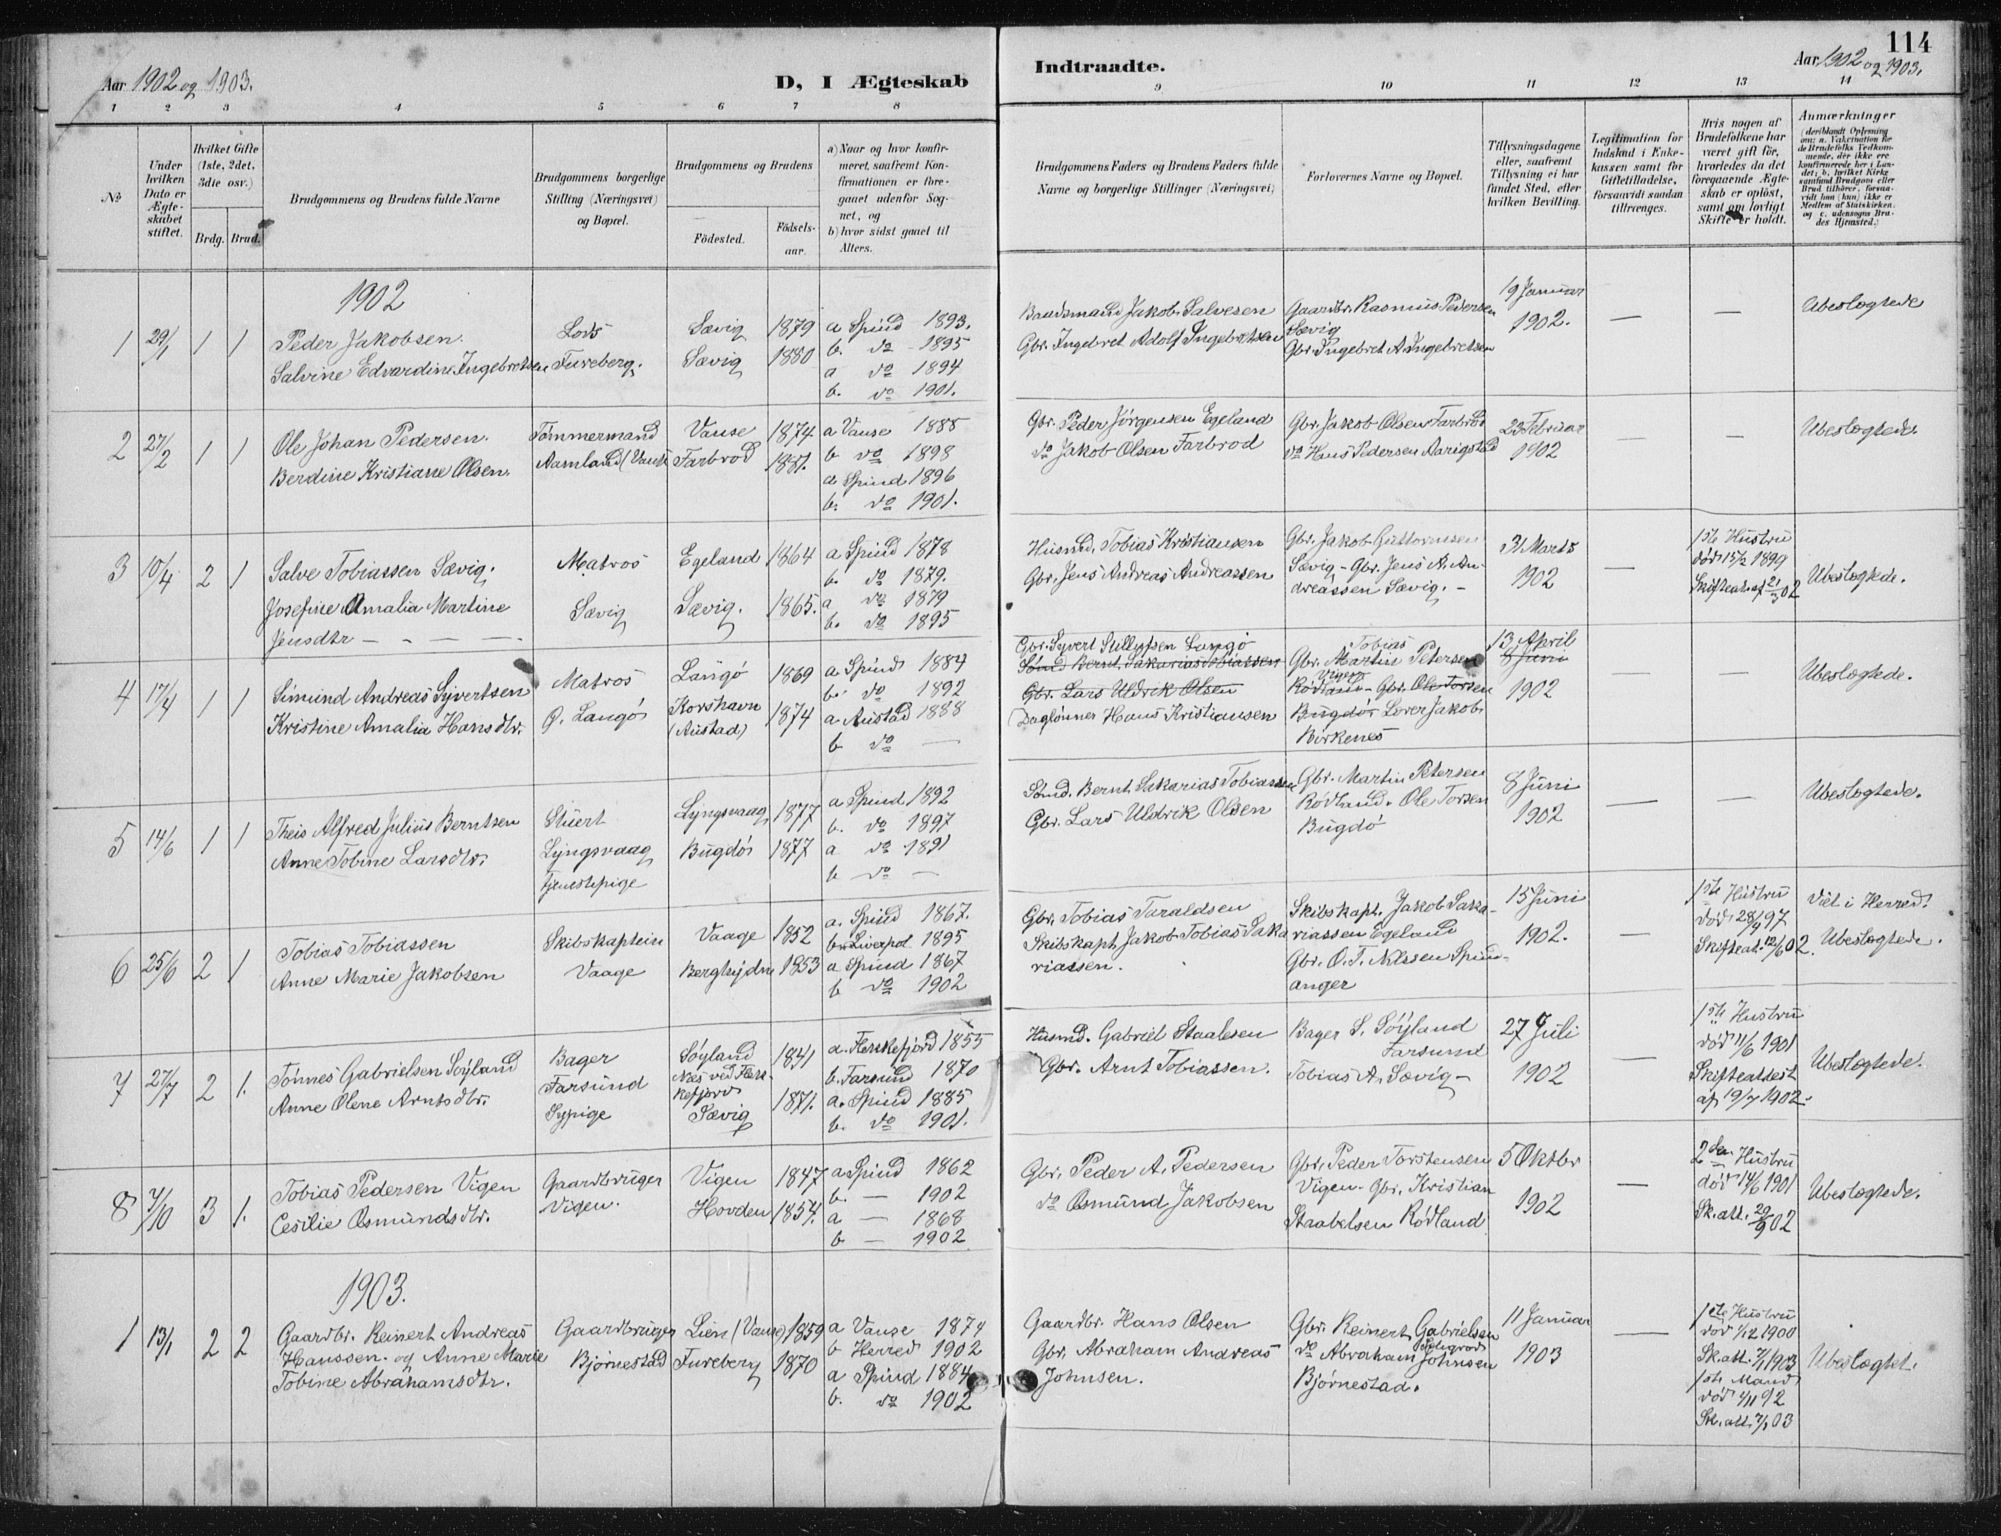 Aar 1902 og 1903.
D, I Ægteskab
Indtraadte.
Aar 1902 og 1903.
114
1 2 3 4 5 6 7 8 9 10 11 12 13 14
No
Under hvilken Dato er Ægteskabet stiftet.
Hvilket Gifte (1ste, 2det, 3die osv.)
Brdg. Brud.
Brudgommens og Brudens fulde Navne
Brudgommens borgerlige Stilling (Næringsvei) og Bopæl.
Brudgommens og Brudens
Födested.
Födselsaar.
a) Naar og hvor konfirmeret, saafremt Konfirmationen er foregaaet udenfor Sognet, og
b) hvor sidst gaaet til Alters.
Brudgommens Faders og Brudens Faders fulde Navne og borgerlige Stillinger (Næringsvei)
Forlovernes Navne og Bopæl.
Tillysningsdagene eller, saafremt Tillysning ei har fundet Sted, efter hvilken Bevilling.
Legitimation for Indskud i Enkekassen samt for Giftetilladelse, forsaavidt saadan tiltrænges.
Hvis nogen af Brudefolkene har været gift för, hvorledes da det foregaaende Ægteskab er oplöst, samt om lovligt Skifte er holdt.
Anmærkninger
(deriblandt Oplysning om: a. Vakcination for de Brudefolks Vedkommende, der ikke ere konfirmerede her i Landet; b. hvilket Kirkesamfund Brudgom eller Brud tilhörer, forsaavidt han (hun) ikke er Medlem af Statskirken, og c. udensogns Brudes Hjemsted.)
1902
1 29/1 1 1
Peder Jakobsen.
Salvine Edvardine Ingebretsen
Lods
Fureberg.
Sævig 1879
Sævig 1880
a Spind 1893.
b. do 1895
a do 1894
b. do 1901.
Baadsmand Jakob Salvesen
Gbr. Ingebret Adolf Ingebretsen
Gaardbr. Rasmus Pedersen
Sævig
Gbr. Ingebret A. Ingebretsen
19 Januar
1902.
— —
Ubeslægtede
2 27/2 1 1
Ole Johan Pedersen.
Berdine Kristiane Olsen.
Tömmermand
Aamland (Vanse
Vanse 1874
Farbrod 1881.
a Vanse 1888
b do 1898
a Spind 1896
b. do 1901.
Gbr. Peder Jörgensen Egeland
do Jakob Olsen Farbrod
Gbr. Jakob Olsen Farbrod
do Hans Pedersen Aarigstad
23 Februar
1902
— —
Ubeslægtede.
3 10/4 2 1
Salve Tobiassen Sævig.
Josefine Amalia Martine
Jensdtr — - - —
Matros
Sævig
Egeland 1864
Sævig. 1865.
a Spind 1878
b. do 1879.
a do 1879
b. do 1895
Husmd. Tobias Kristiansen
Gbr. Jens Andreas Andreassen
Gbr. Jakob Guttormsen
Sævig - Gbr. Jens A. An-
dreassen Sævig. -
31 Marts
1902
—
1ste Hustru
död 15/2 1899
Skifteat. af 21/3 02
Ubeslægtede.
4 17/4 1 1
Simund Andreas Syvertsen
Kristine Amalia Hansdtr.
Matros
Langö
Langö 1869
Korshavn
(Austad) 1874
a Spind 1884
b. do 1892
a Austad 1888
b do —
Gbr. Syvert Langö
Sönd. Bernt Sakarias Tobiassen
Gbr. Lars Uldrik Olsen
Daglönner Hans Kristiansen
Tobias
Gbr. Martin Petersen
Vigen
Rödland - Gbr. Ole Torsen
Bugdö Jakob
Birkenes
13 April
8 Juni
1902
— —
Ubeslægtede.
5 14/6 1 1
Theis Alfred Julius Berntsen
Anne Tobine Larsdtr.
Stuert
Lyngsvaag
Tjenestepige
Lyngsvaag 1877
Bugdö 1877
a Spind 1892
b. do 1897
a do 1891
b do —
Sönd. Bernt Sakarias Tobiassen
Gbr. Lars Uldrik Olsen
Gbr. Martin Petersen
Rödland. Ole Torsen
Bugdö
8 Juni
1902
— —
Ubeslægtede.
6 25/6 2 1
Tobias Tobiassen
Anne Marie Jakobsen
Skibskaptein
Vaage
Vaage 1852
1853
a. Spind 1867.
b. Liverpol 1895
a Spind 1867
b do 1902
Gbr. Tobias Taraldsen
Skibskapt. Jakob Tobias Saka
riassen.
Skibskapt. Jakob Saka-
riassen Egeland
Gbr. O. T. Nilssen Spind-
anger
15 Juni
1902.
—
1ste Hustru
död 28/4 97
Skifteat. 12/6 02.
Viet i Herred.
Ubeslægtede.
7 27/7 2 1.
Tönnes Gabrielsen Söyland
Anne Olene Arntsdtr.
Bager
Farsund
Sypige
Söyland
Næs ved Flek-
kefjord 1841
Sævig 1871.
a. Flekkefjord 1855
b. Farsund 1870
a. Spind 1885
b. do 1901.
Husmd. Gabriel Staalesen
Gbr. Arnt Tobiassen.
Bager S. Söyland
Farsund
Tobias A. Sævig -
27 Juli
1902
—
1ste Hustru
död 11/6 1901
Skifteattest
af 19/7 1902.
Ubeslægtede.
8 7/10 3 1.
Tobias Pedersen Vigen
Cesilie Osmundsdtr.
Gaardbruger
Vigen.
Vigen 1847
Hovden 1854.
a Spind 1862
b. — 1902
a — 1868
b — 1902
Gbr. Peder A. Pedersen
do Osmund Jakobsen
Gbr. Peder Torstensen
Vigen. Gbr. Kristian
Staabelsen Rödland
5 Oktbr
1902
—
2den Hustru
död 14/6 1901
Sk. att. 29/9 02
Ubeslægtede.
1903.
1 13/1 2 2
Gaardbr. Reinert Andreas
Hanssen. og Anne Marie
Tobine Abrahamsdtr.
Gaardbruger
Bjørnestad
Lien (Vanse) 1859
Fureberg 1870
a Vanse 1874
b Herred 1902
a Spind 1884
b. do 1902
Gaardbr. Hans Olsen
Gbr. Abraham Andreas
Johnsen.
Gbr. Reinert Gabrielsen
do Abraham Johnsen
Bjørnestad.
11 Januar
1903
—
1ste Hustru
död 1/12 1900
Sk. att. 7/1 1903
1ste Mand
död 1/11 92
Sk. att. 7/1 03
Ubeslægtet.